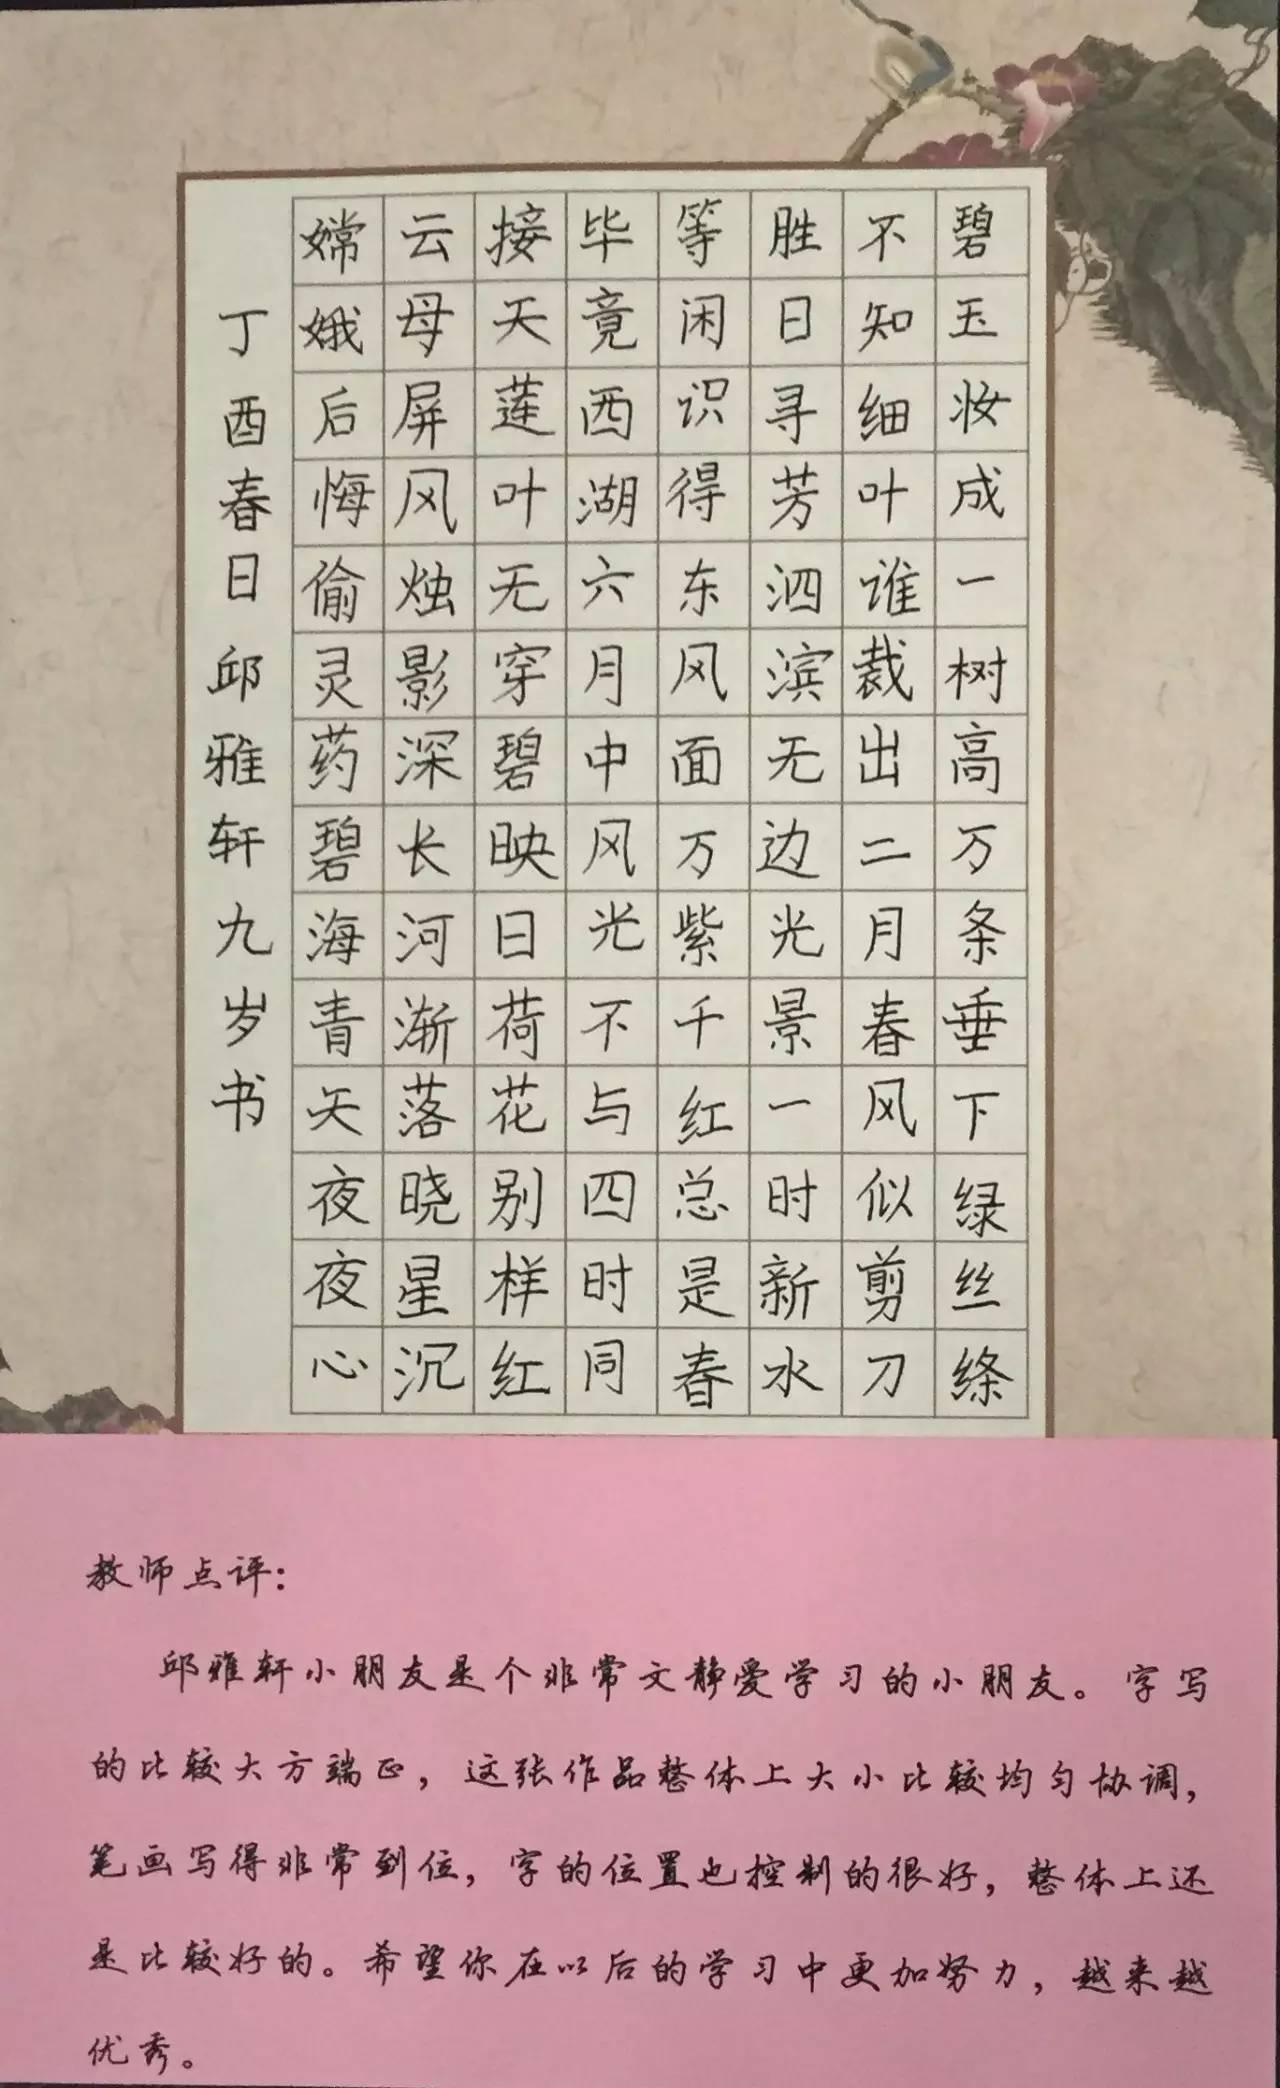 碧玉妆成一树高万条垂下绿丝绦
不知细叶谁裁出二月春风似剪刀
胜日寻芳泗滨无边光景一时新水
等闲识得东风面万紫千红总是春
毕竟西湖六月中风光不与四时同
接天莲叶无穿碧映日荷花别样红
云母屏风烛影深长河渐落晓星沉
嫦娥后悔偷灵药碧海青天夜夜心
丁酉春日邱雅轩九岁书
教师点评：
邱雅轩小朋友是个非常文静爱学习的小朋友。字写
的比较大方端正，这张作品整体上大小比较均匀协调，
笔画写得非常到位，字的位置也控制的很好，整体上还
是比较好的。希望你在以后的学习中更加努力，越来越
优秀。